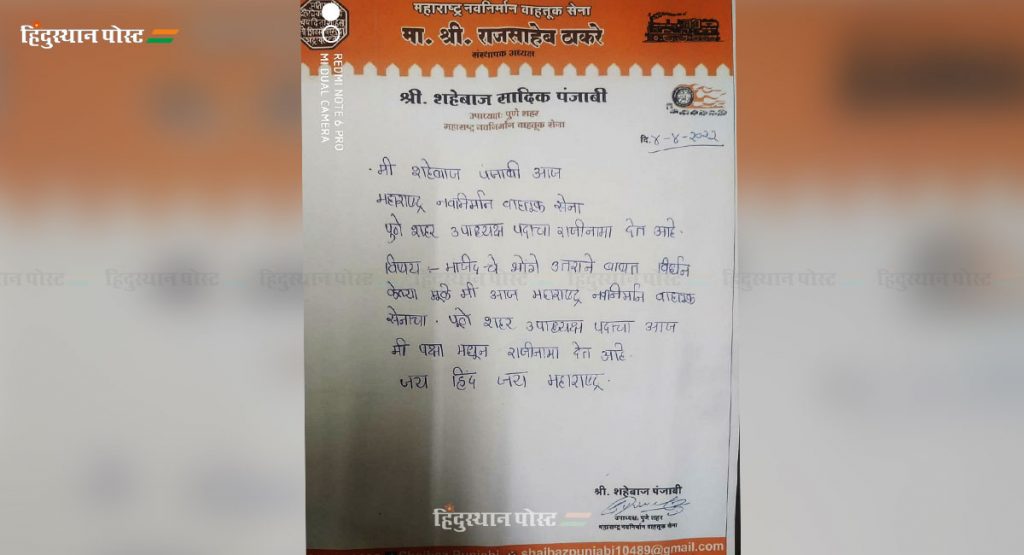 हिंदुस्थान पोस्ट
महाराष्ट्र नवनिर्माण वाहतूक सेना
मा. श्री. राजसाहेब ठाकरे
संस्थापक अध्यक्ष
REDMI NOTE 6 PRO
MI DUAL CAMERA
श्री. शहेबाज सादिक पंजाबी
उपाध्यक्षः पुणे शहर
महाराष्ट्र नवनिर्माण वाहतूक सेना
दि. ४-४-२०२२
मी शहेबाज पंजाबी आज
महाराष्ट्र नवनिर्माण वाहतूक सेना
पुणे शहर उपाध्यक्ष पदाचा राजीनामा देत आहे.
विषय :- माजिद चे भोंगे उतराने बाबत विर्धान
केल्या मुळे मी आज महाराष्ट्र नवनिर्मान वाहतूक
सेनाचा. पुणे शहर उपाध्यक्ष पदाचा आज
मी पक्षा मधून राजीनामा देत आहे.
जय हिंद जय महाराष्ट्र.
हिंदुस्थान पोस्ट
हिंदुस्थान पोस्ट
श्री. शहेबाज पंजाबी
उपाध्यक्षः पुणे शहर
महाराष्ट्र नवनिर्माण वाहतूक सेना
हिंदुस्थान पोस्ट
shaibazpunjabi10489@gmail.com